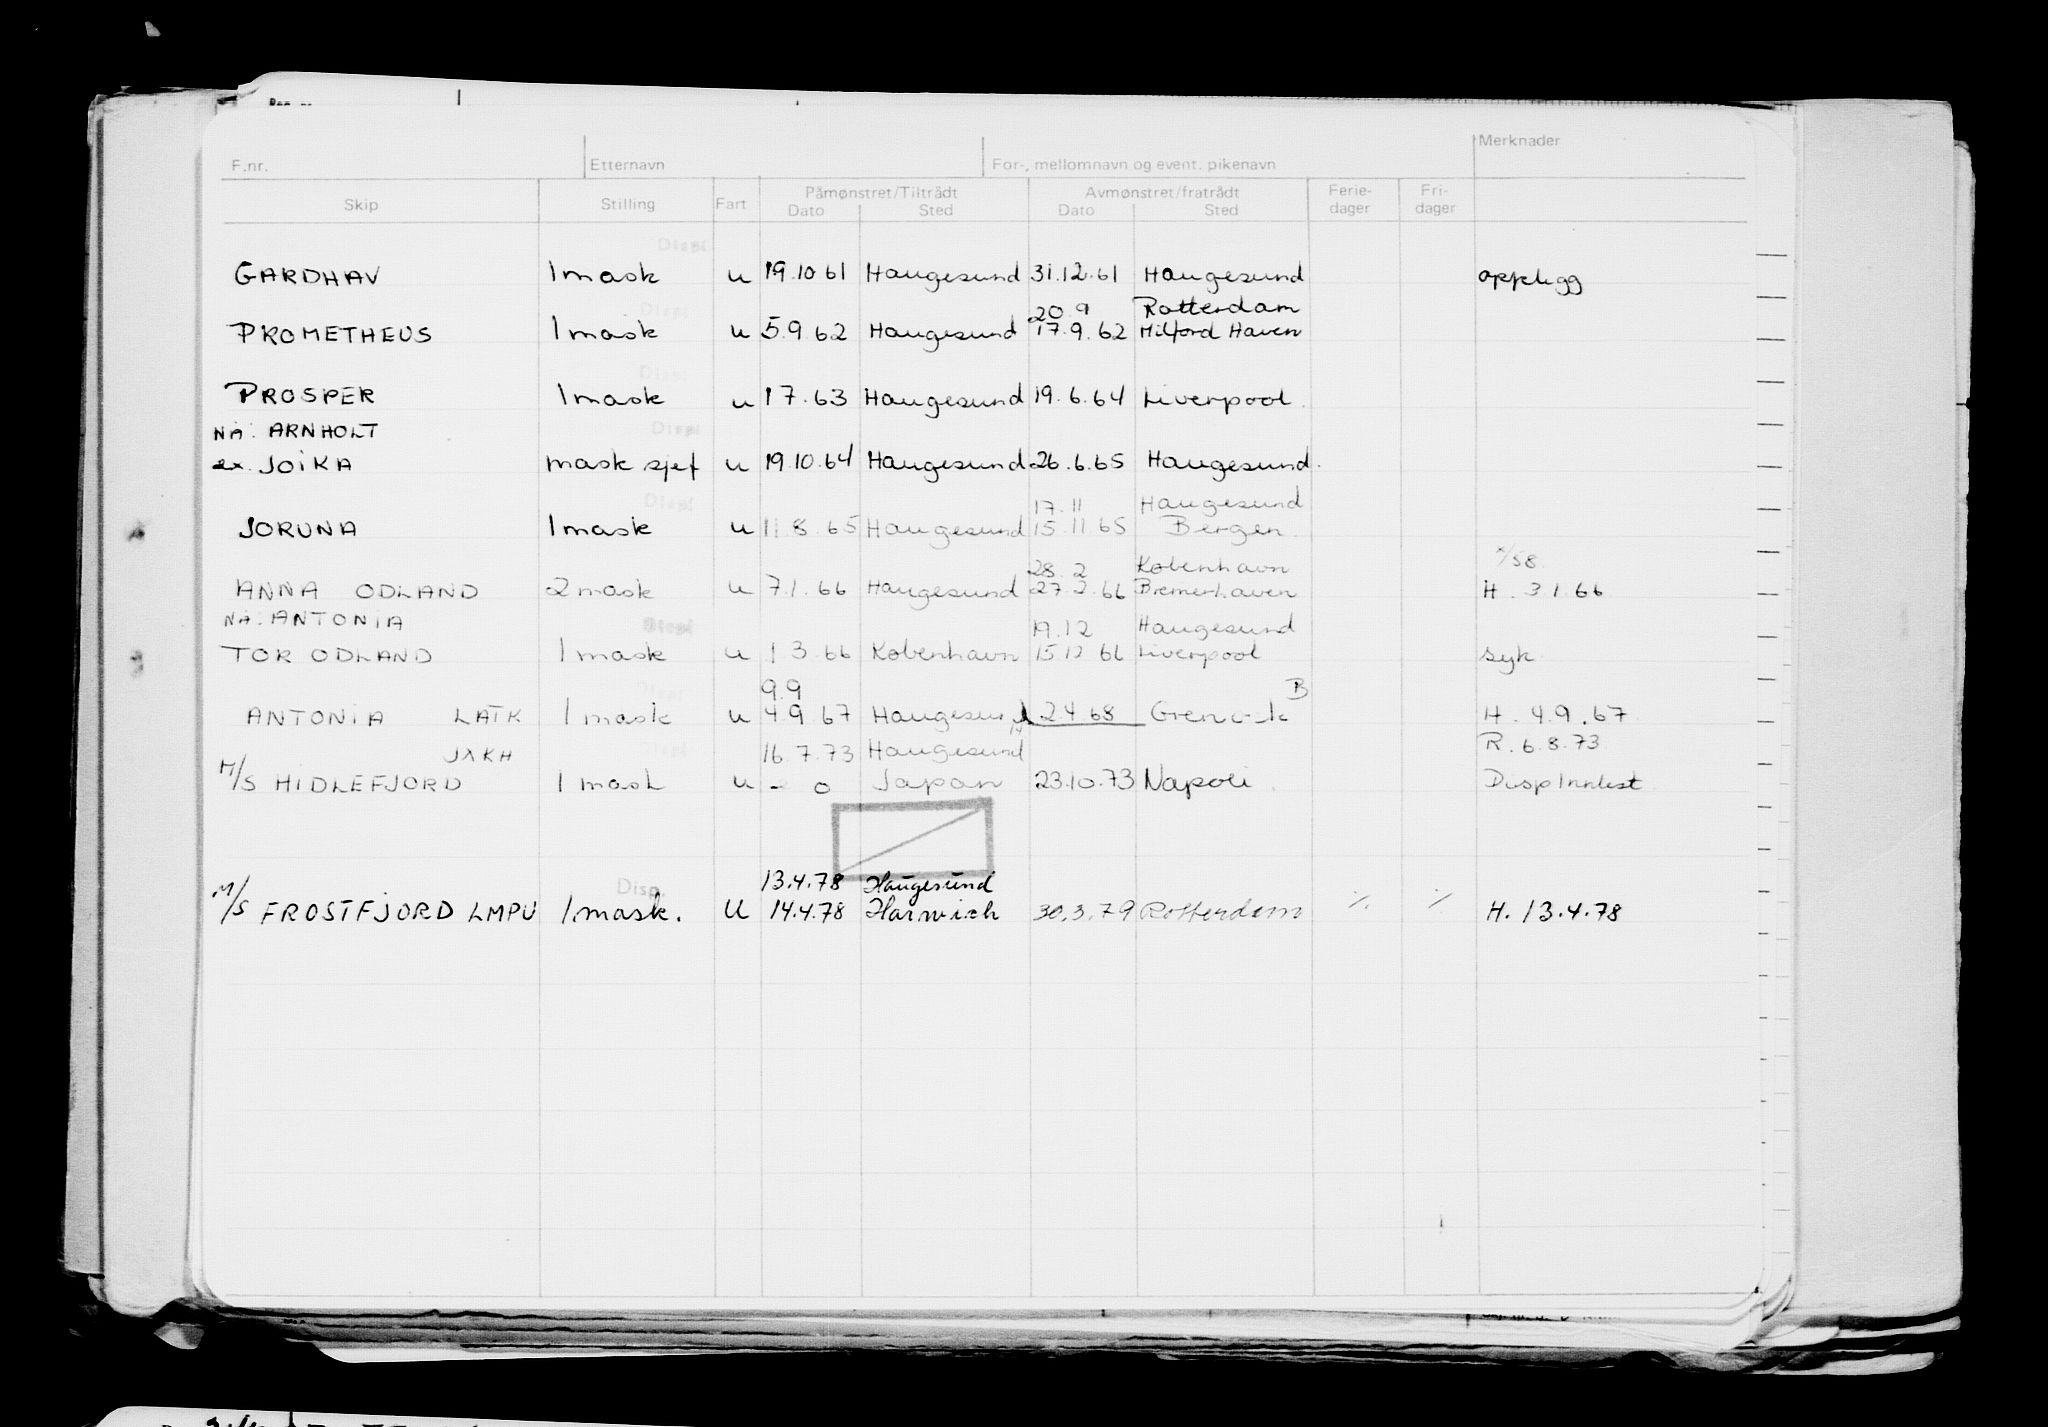 Merknader
F.nr. Etternavn For-, mellomnavn og event. pikenavn
Skip Stilling Fart Påmønstret/Tiltrådt Avmønstret/fratrådt Ferie- Fri-
Dato Sted Dato Sted dager dager
GARDHAV 1 mask u 19.10 61 Haugesund 31.12.61 Haugesund opplegg
20.9 Rotterdam
PROMETHEUS 1 mask u 5.9.62 Haugesund 17.9.62 Milford Haven
PROSPER 1 mask u 1 7.63 Haugesund 19.6.64 Liverpool
NÅ: ARNHOLT
ex. JOIKA mask sjef u 19.10.64 Haugesund 26.6.65 Haugesund.
17.11 Haugesund
JORUNA 1 mask u 11.8.65 Haugesund 15.11 65 Bergen
28.2 København x/58
ANNA ODLAND 2 mask u 7.1.66 Haugesund 27.2.66 Bremerhaven H. 3.1.66
NÅ: ANTONIA 19.12 Haugesund
TOR ODLAND 1 mask u 1 3.66 København 15.12 66 Liverpool syk
9.9 B
ANTONIA LATK 1 mask u 4.9.67 Haugesund 2 4 68 Grenock H. 4.9.67
JXKH 16.7.73 Haugesund R. 6.8.73
M/S HIDLEFJORD 1 mask u - o Japan 23.10.73 Napoli Disp Innlest
Disp. 13.4.78 Haugesund
M/S FROSTFJORD LMPU 1.mask. U 14.4.78 Harwich 30.3.79 Rotterdam ⁒ ⁒ H. 13.4.78